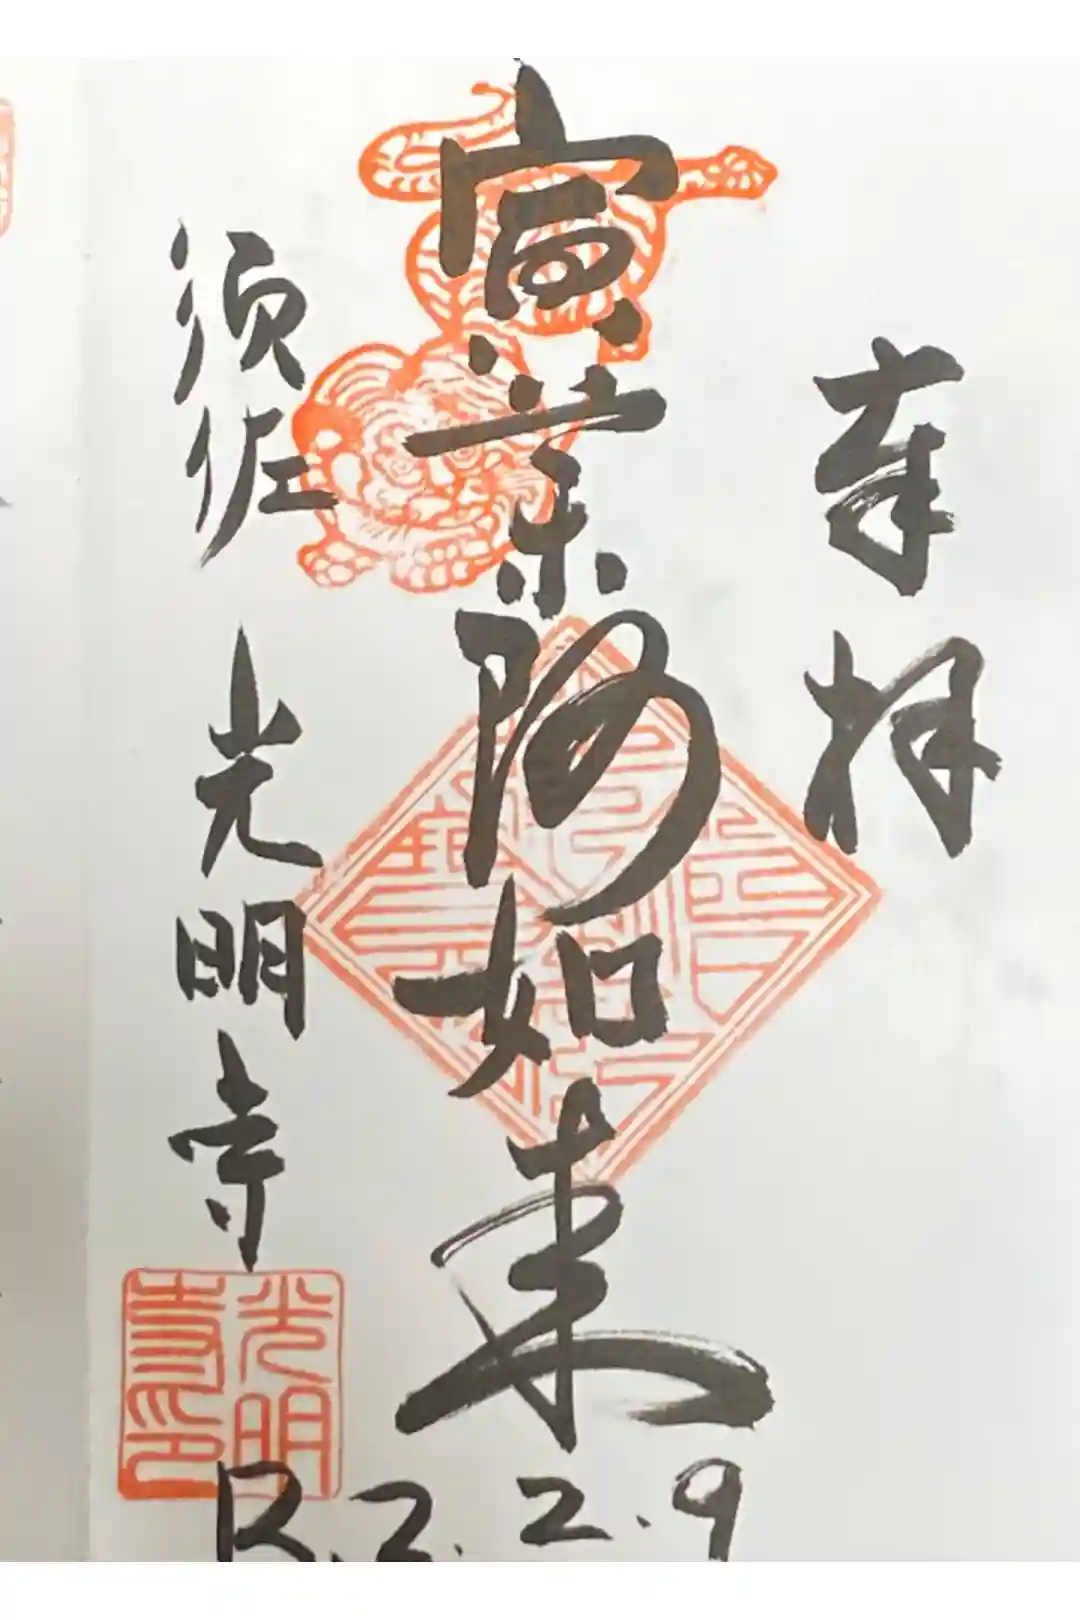 奉拝
寅薬阿如来
須佐 光明寺
光明
寺印
R.2.2.9